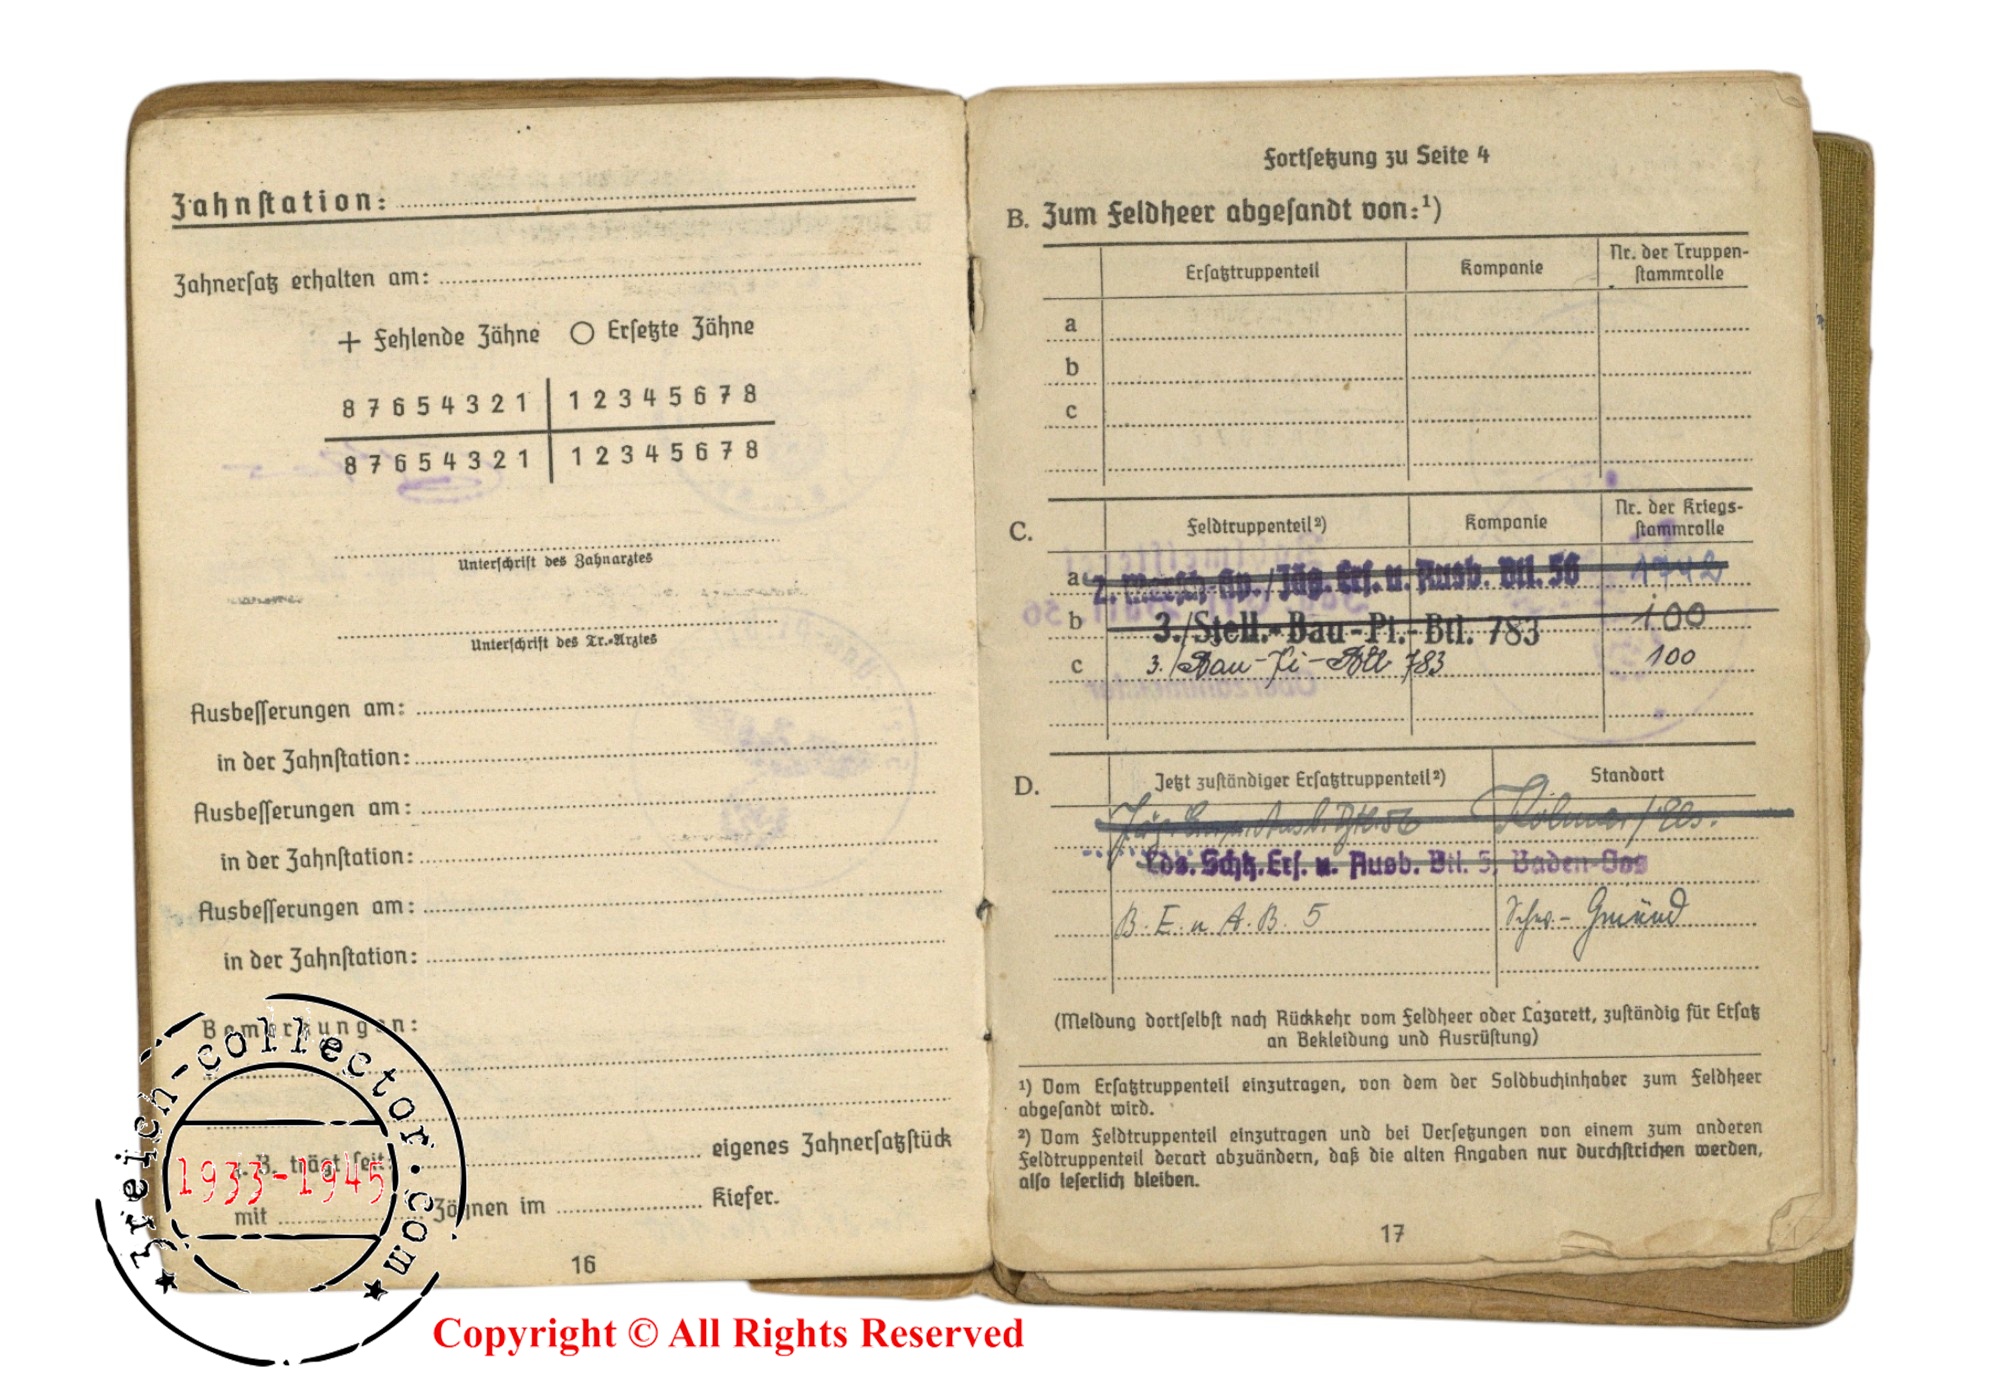 Zahnstation:
Zahnersatz erhalten am:
+ Fehlende Zähne ○ Ersetzte Zähne
8 7 6 5 4 3 2 1 | 1 2 3 4 5 6 7 8
8 7 6 5 4 3 2 1 | 1 2 3 4 5 6 7 8
Unterschrift des Zahnarztes
Unterschrift des Tr.-Arztes
Ausbesserungen am:
in der Zahnstation:
Ausbesserungen am:
in der Zahnstation:
Ausbesserungen am:
in der Zahnstation:
Bemerkungen:
trägt seit: eigenes Zahnersatzstück
mit Zähnen im Kiefer.
16
Fortsetzung zu Seite 4
B. Zum Feldheer abgesandt von:¹)
Ersatztruppenteil Kompanie Nr. der Truppen-
stammrolle
a
b
c
C. Feldtruppenteil²) Kompanie Nr. der Kriegs-
stammrolle
a 2. Marsch Kp./Jäg. Ers. u. Ausb. Btl. 56 1742
b 3./Stell.-Bau-Pi.-Btl. 783 100
c 3./Bau-Pi-Btl 783 100
D. Jetzt zuständiger Ersatztruppenteil²) Standort
Jäg. Ers. u. Ausb. Btl. 56 Kolmar/Els.
Lds. Schtz. Ers. u. Ausb. Btl. 5, Baden-Oos
B. E. u A. B. 5 Schw.-Gmünd
(Meldung dortselbst nach Rückkehr vom Feldheer oder Lazarett, zuständig für Ersatz
an Bekleidung und Ausrüstung)
¹) Vom Ersatztruppenteil einzutragen, von dem der Soldbuchinhaber zum Feldheer
abgesandt wird.
²) Vom Feldtruppenteil einzutragen und bei Versetzungen von einem zum anderen
Feldtruppenteil derart abzuändern, daß die alten Angaben nur durchstrichen werden,
also leserlich bleiben.
17
3reich-collector.com
1933-1945
Copyright © All Rights Reserved